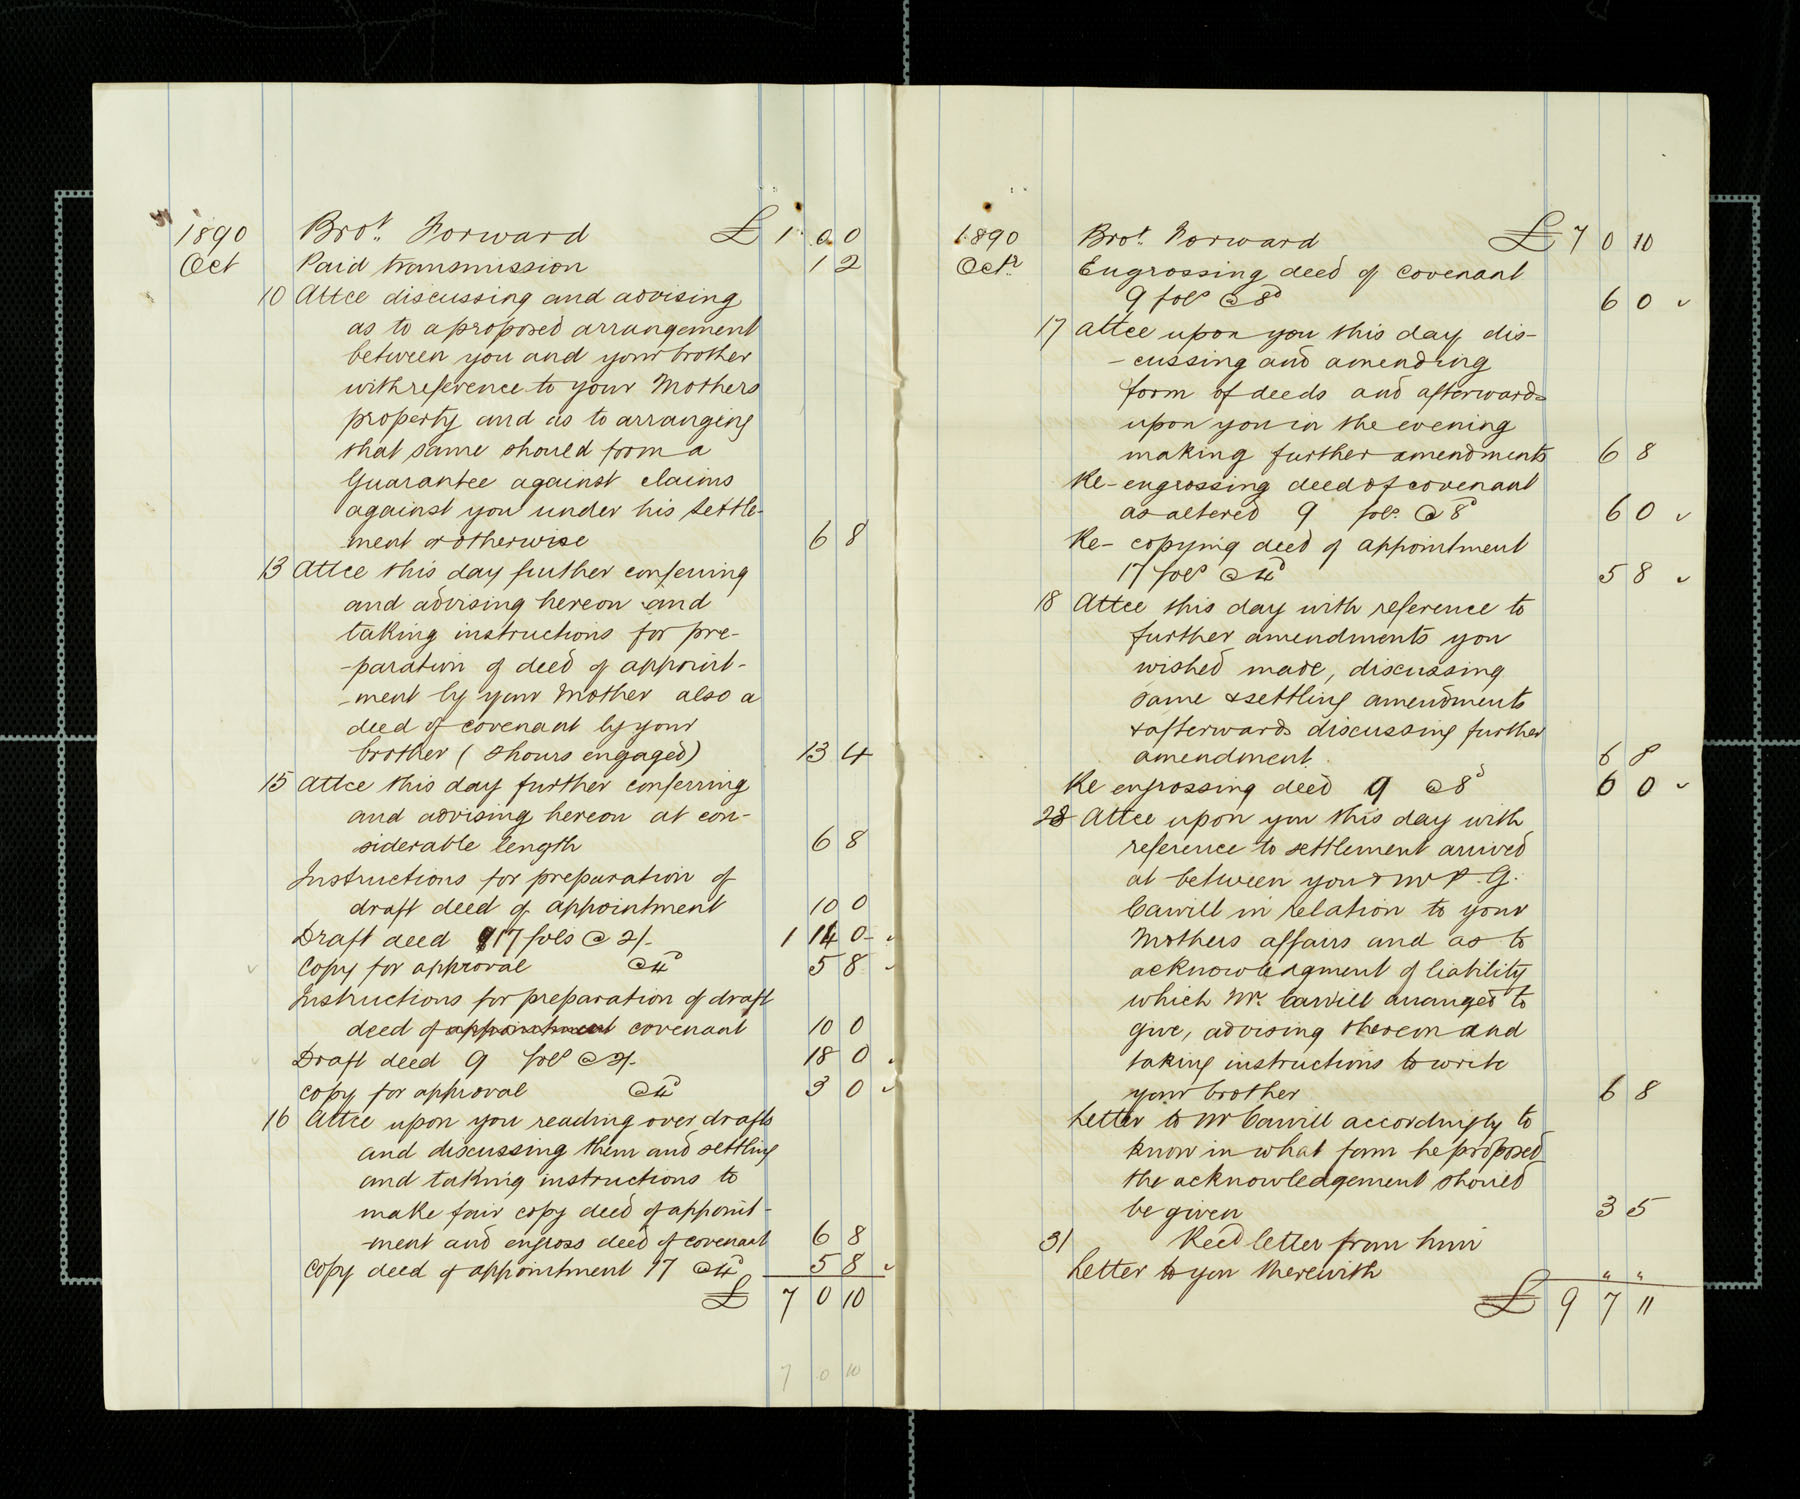 1890 Brot. Forward £ 1 0 0
Oct Paid transmission 1 2
10 Attce discussing and advising
as to a proposed arrangement
between you and your brother
with reference to your Mothers
property and as to arranging
that same should form a
Guarantee against claims
against you under his settle-
ment or otherwise 6 8
13 Attce this day further conferring
and advising hereon and
taking instructions for pre-
-paration of deed of appoint-
-ment by your Mother also a
deed of covenant by your
brother ( 2 hours engaged) 13 4
15 Attce this day further conferring
and advising hereon at con-
siderable length 6 8
Instructions for preparation of
draft deed of appointment 10 0
Draft deed 17 fols @ 2/- 1 14 0-
Copy for approval @ 4d 5 8
Instructions for preparation of draft
deed of appointment covenant 10 0
Draft deed 9 fols @ 2/- 18 0
Copy for approval @ 4d 3 0
16 Attce upon you reading over drafts
and discussing them and settling
and taking instructions to
make fair copy deed of appoint-
-ment and engross deed of covenant 6 8
Copy deed of appointment 17 @ 4d 5 8
£ 7 0 10
7 0 10
1890 Brot. Forward £ 7 0 10
Octr Engrossing deed of covenant
9 fols @ 8d 6 0
17 Attce upon you this day dis-
-cussing and amending
form of deeds and afterwards
upon you in the evening
making further amendments 6 8
Re-engrossing deed of covenant
as altered 9 fols. @ 8d 6 0
Re-copying deed of appointment
17 fols @ 4d 5 8
18 Attce this day with reference to
further amendments you
wished made, discussing
same & settling amendments
& afterwards discussing further
amendment 6 8
Re engrossing deed 9 @ 8d 6 0
28 Attce upon you this day with
reference to settlement arrived
at between you & Mr P. G.
Cawill in relation to your
Mothers affairs and as to
acknowledgment of liability
which Mr. Cawill arranged to
give, advising thereon and
taking instructions to write
your brother 6 8
Letter to Mr Cawill accordingly to
know in what form he proposed
the acknowledgement should
be given 3 5
31 Recd letter from him
Letter to you therewith " "
£ 9 7 11